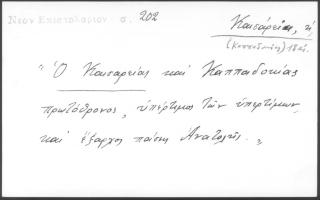 Νεον Επιστολαριον σ. 202
Καισάρεια, ἡ
(Καππαδοκίας)
"Ὁ Καισαρείας καὶ Καππαδοκίας
πρωτόθρονος, ὑπέρτιμος τῶν ὑπερτίμων,
καὶ ἔξαρχος πάσης Ἀνατολῆς.„